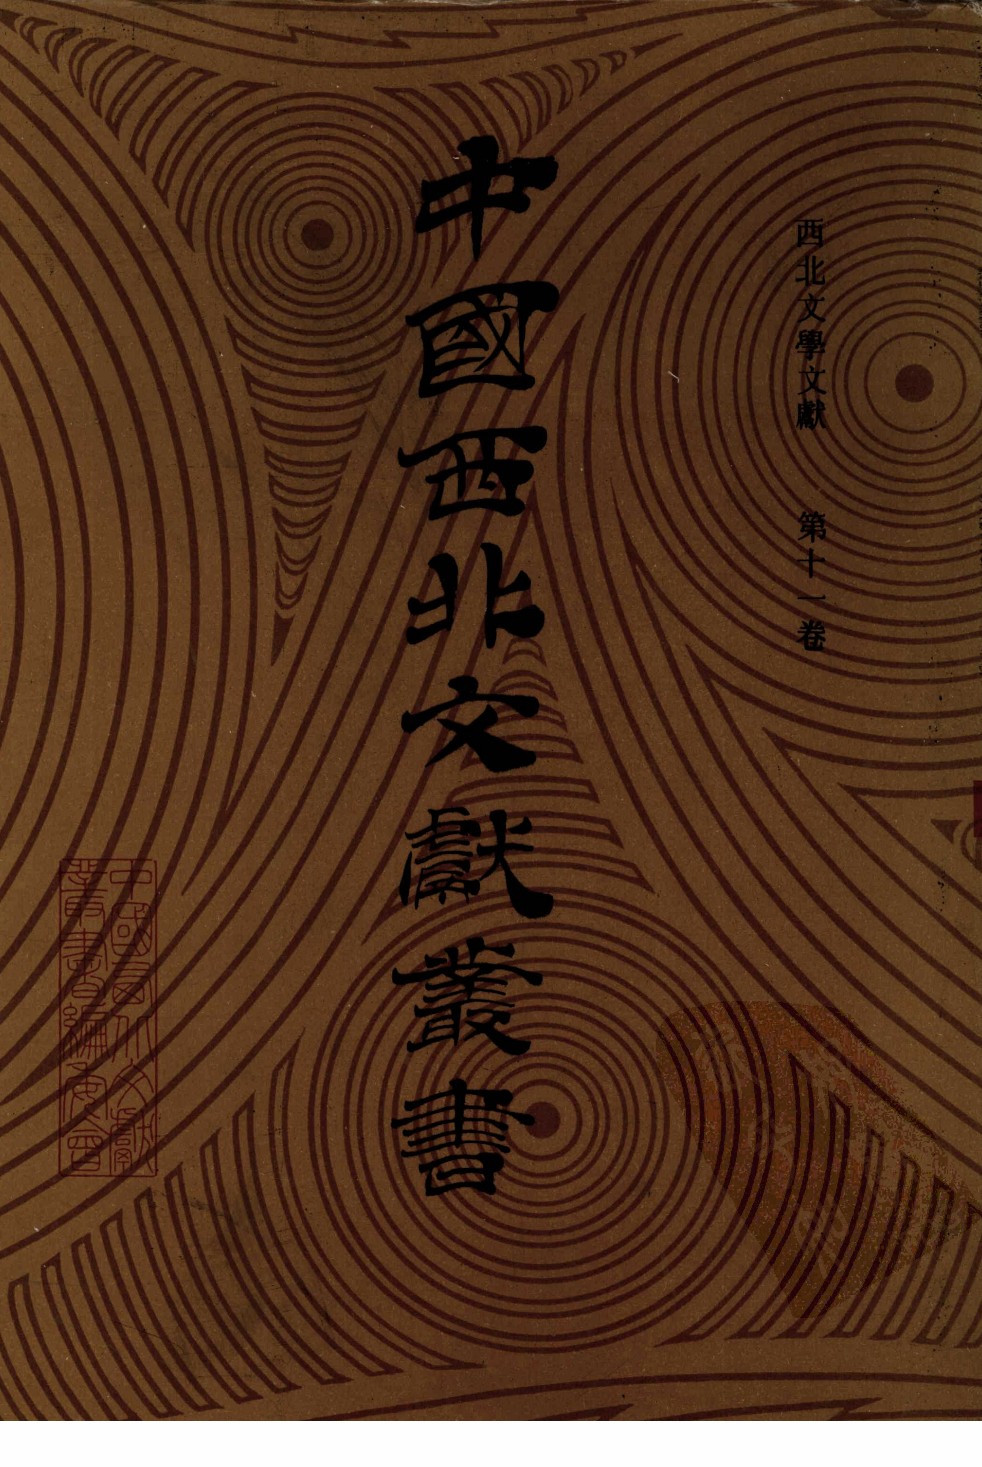 西北文學文獻 第十一卷
中國西北文獻叢書
中國西北文獻
叢書編委會